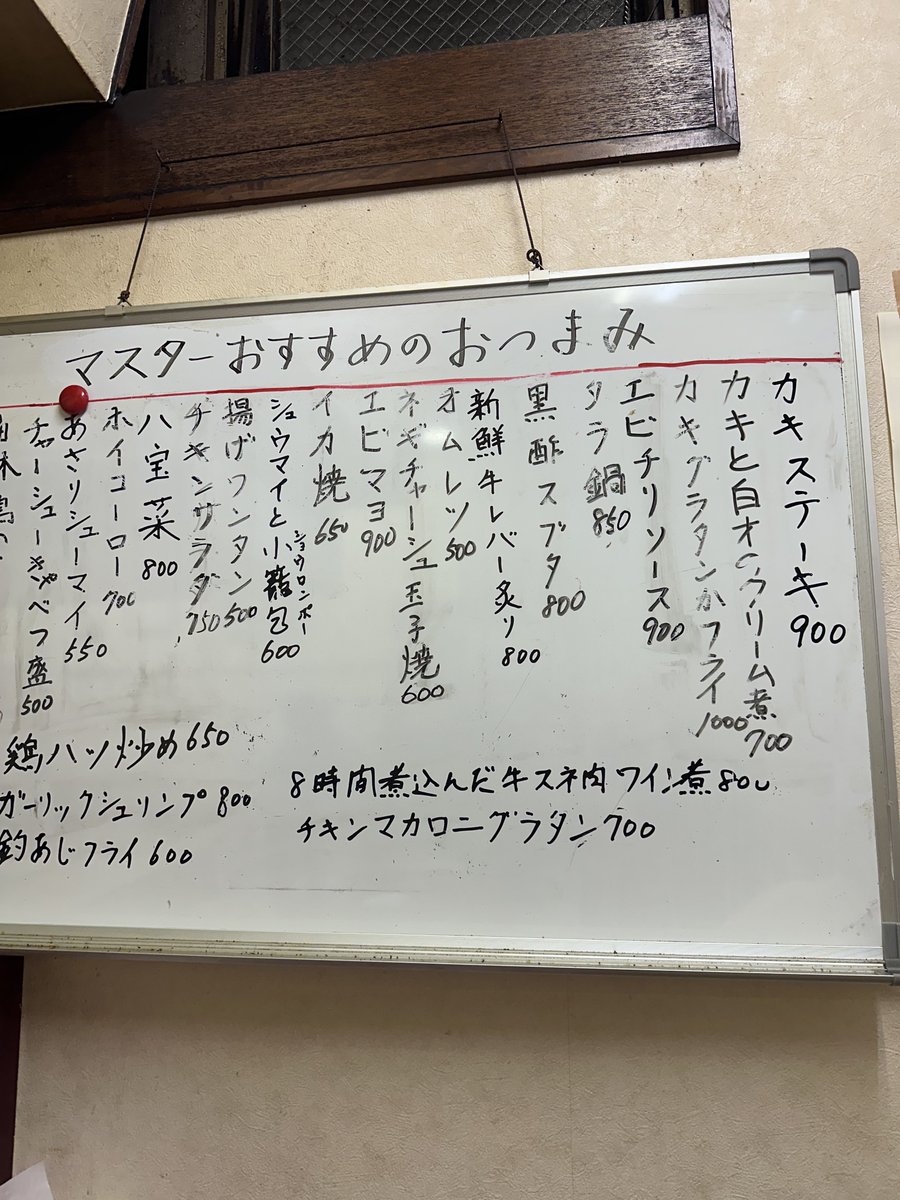 マスターおすすめのおつまみ
カキステーキ 900
カキと白才のクリーム煮 700
カキグラタンかフライ 1000
エビチリソース 900
タラ鍋 850
黒酢スブタ 800
新鮮牛レバー炙り 800
オムレツ 500
ネギチャーシュー玉子焼 600
エビマヨ 900
イカ焼 650
シュウマイと小籠包 600
ショウロンポー
揚げワンタン 500
チキンサラダ 750
八宝菜 800
ホイコーロー 700
あさりシューマイ 550
チャーシューキャベツ盛 500
鶏ハツ炒め 650
ガーリックシュリンプ 800
釣あじフライ 600
8時間煮込んだ牛スネ肉ワイン煮 800
チキンマカロニグラタン 700